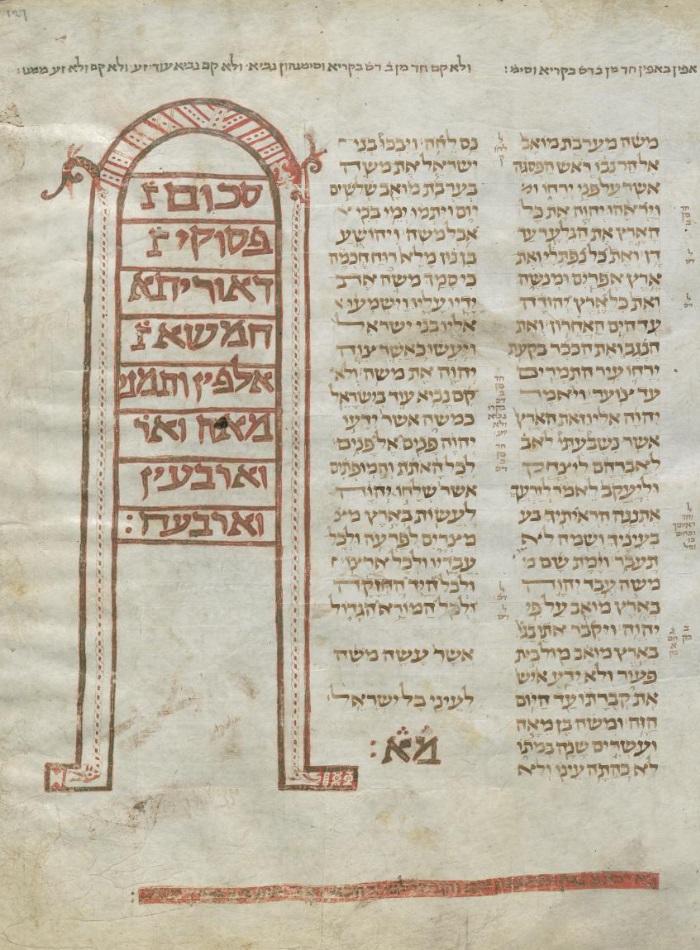 אפין באפין חד מן
ולא קם חד מן בקריא וסימנהון נביא ולא קם נביא עוד ולא קם ולא זע ממנו:
משה מערבת מואב
אל הר נבו ראש הפסגה
אשר על פני ירחו
ויראהו יהוה את כל
הארץ את הגלעד עד
דן ואת כל נפתלי ואת
ארץ אפרים ומנשה
ואת כל ארץ יהודה
עד הים האחרון ואת
הנגב ואת הככר בקעת
ירחו עיר התמרים
עד צוער ויאמר
יהוה אליו זאת הארץ
אשר נשבעתי לאב
לאברהם ליצחק
וליעקב לאמר לזרעך
אתננה הראיתיך בע
בעיניך ושמה לא
תעבר וימת שם מ
משה עבד יהוה
בארץ מואב על פי
יהוה ויקבר אתו בג
בארץ מואב מול בית
פעור ולא ידע איש
את קברתו עד היום
הזה ומשה בן מאה
ועשרים שנה במתו
לא כהתה עינו ולא
נס לחה ויבכו בני
ישראל את משה
בערבת מואב שלשים
יום ויתמו ימי בכי
אבל משה ויהושע
בן נון מלא רוח חכמה
כי סמך משה את
ידיו עליו וישמעו
אליו בני ישראל
ויעשו כאשר צוה
יהוה את משה ולא
קם נביא עוד בישראל
כמשה אשר ידעו
יהוה פנים אל פנים
לכל האתת והמופתים
אשר שלחו יהוה
לעשות בארץ מצ
מצרים לפרעה ולכל
עבדיו ולכל ארצו
ולכל היד החזקה
ולכל המורא הגדול
אשר עשה משה
לעיני כל ישראל
מא:
סכום
פסוקי
דאוריתא
חמשא
אלפין ותמני
מאה ואר
וארבעין
וארבעה: